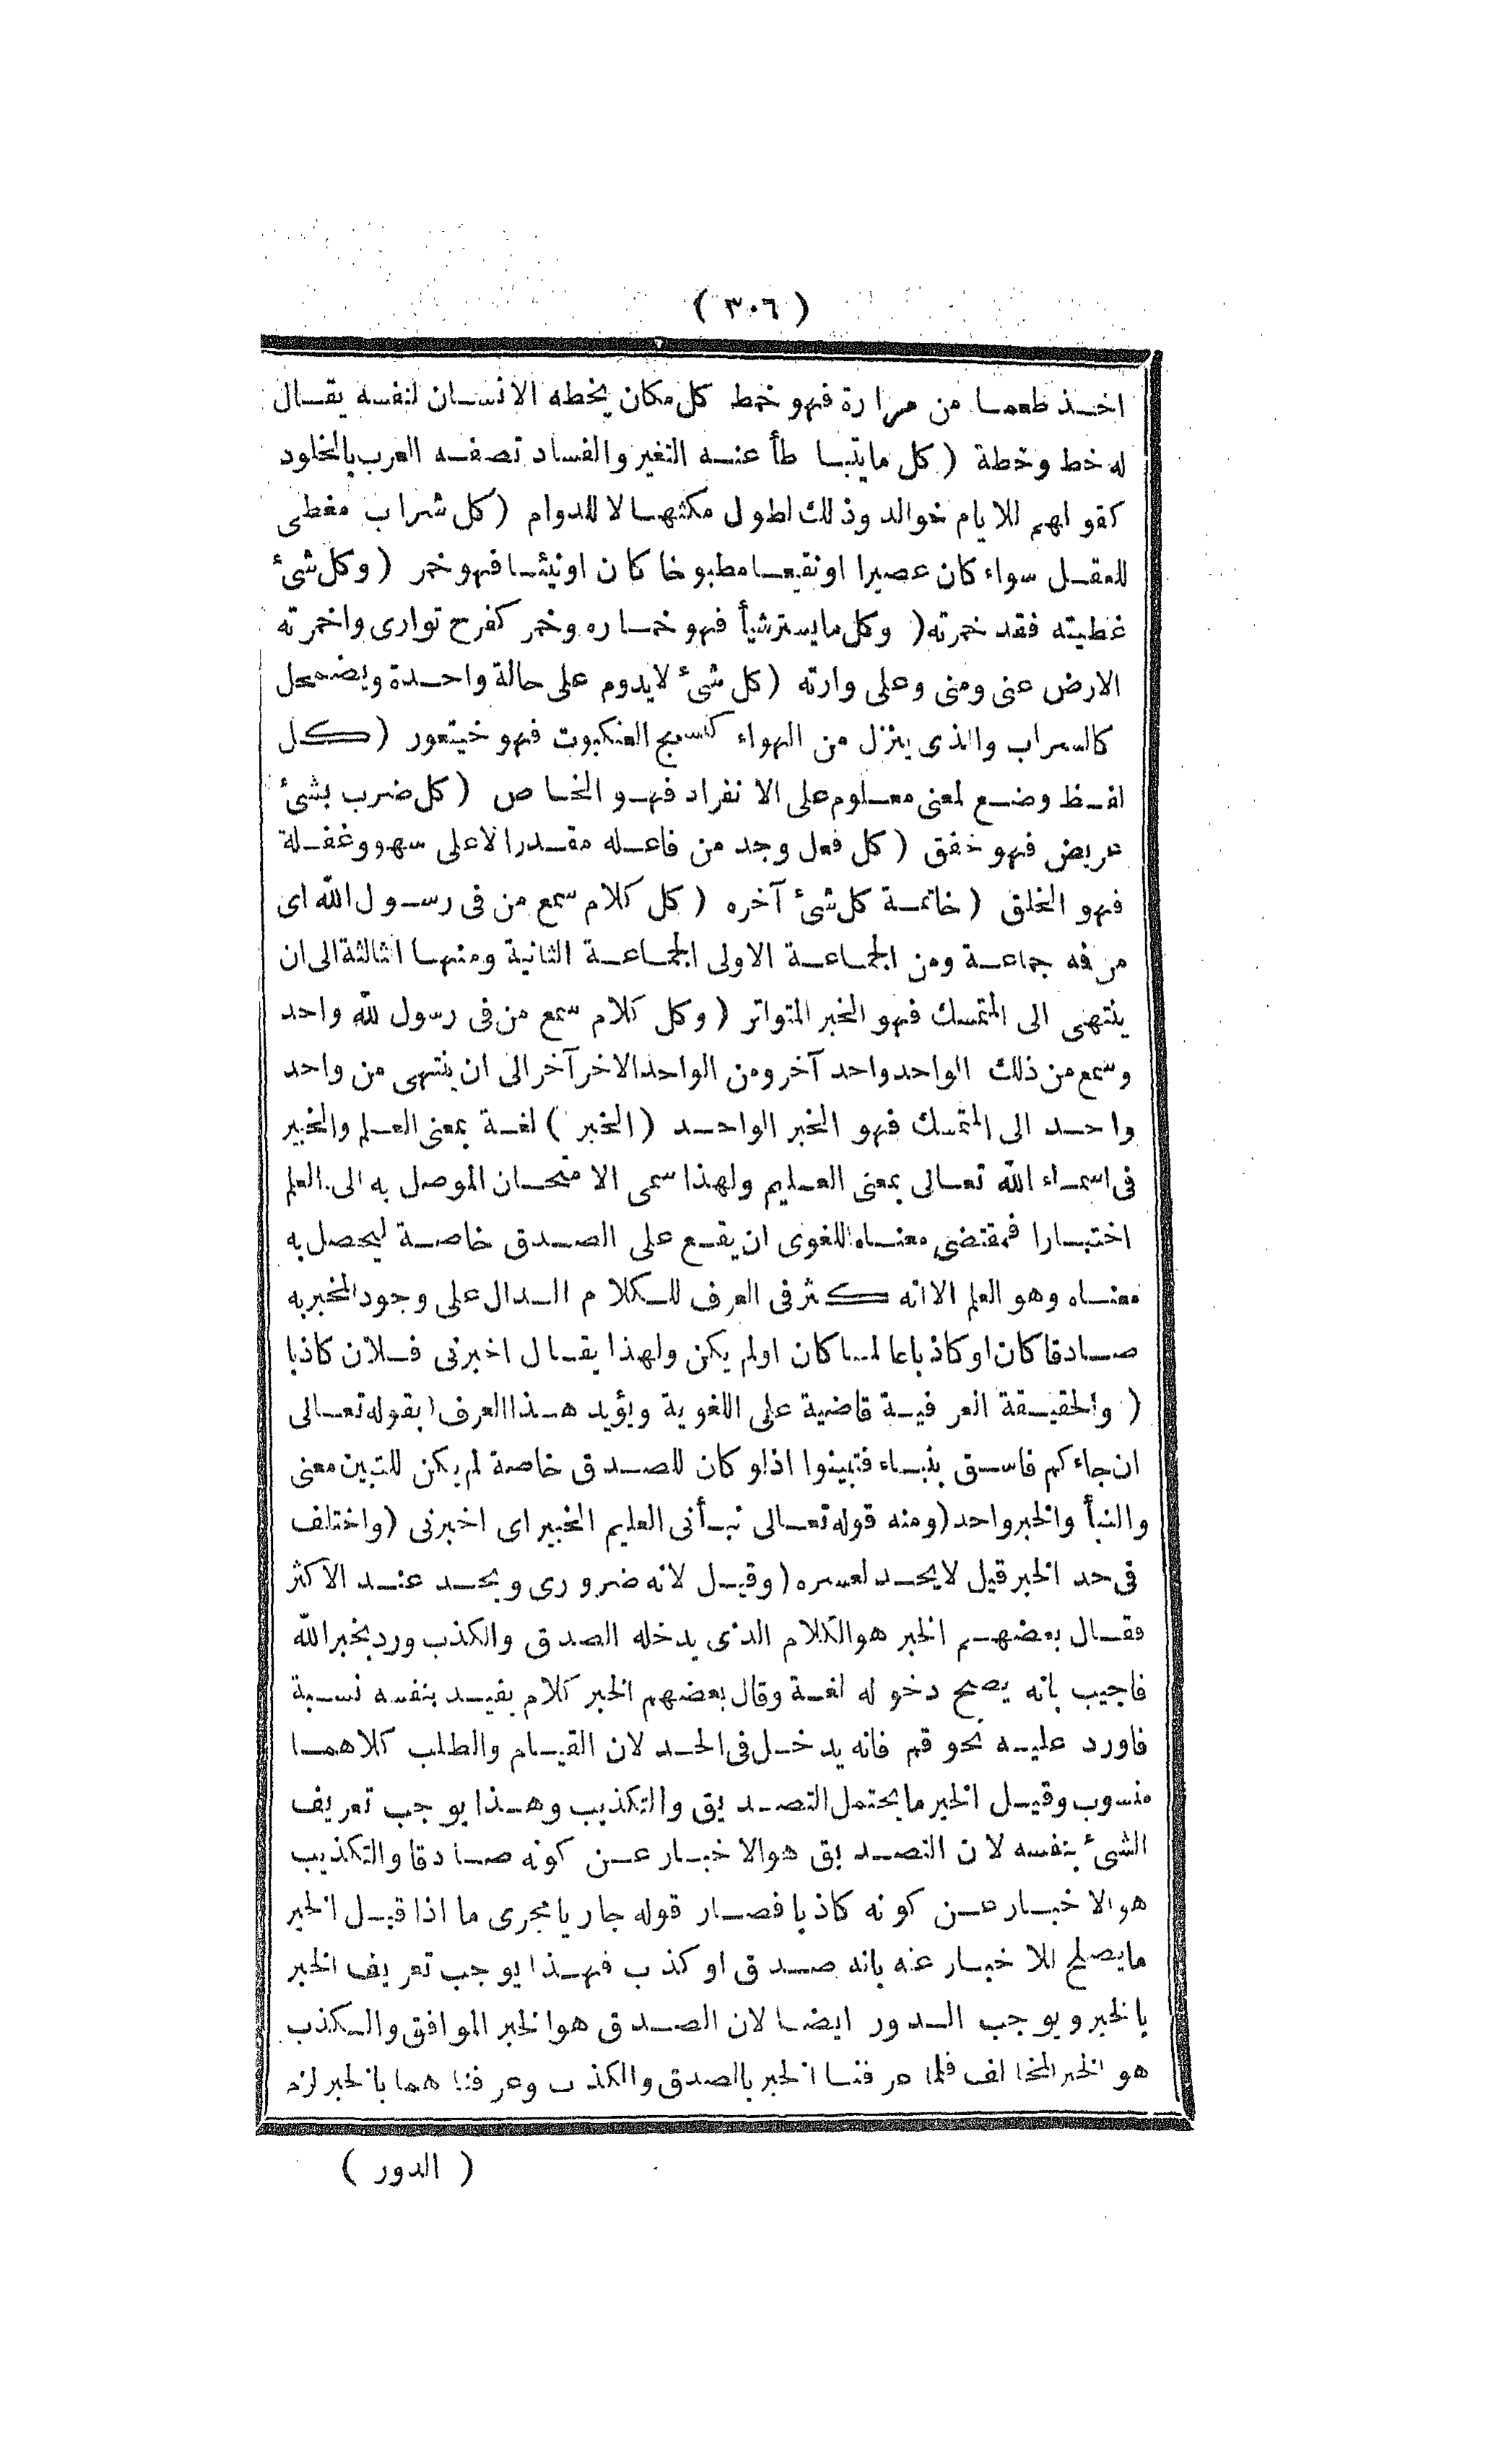 ( ٣٠٦ )
اخذ طعما من مرارة فهو خمط كل مكان يخطه الانسان لنفسه يقال
له خط وخطة ( كل ما يتبا طأ عنه التغير والفساد تصفه العرب بالخلود
كقولهم للايام خوالد وذلك لطول مكثها لا للدوام ( كل شراب مغطى
للعقل سواء كان عصيرا او نقيعا مطبوخا كان او نيئا فهو خمر ( وكل شئ
غطيته فقد خمرته ( وكل ما يستر شيأ فهو خماره وخمر كفرح توارى واخمرته
الارض عنى ومنى وعلى وارته ( كل شئ لايدوم على حالة واحدة ويضمحل
كالسراب والذى ينزل من الهواء كنسيج العنكبوت فهو خيتعور ( كل
لفظ وضع لمعنى معلوم على الانفراد فهو الخاص ( كل ضرب بشئ
عريض فهو خفق ( كل فعل وجد من فاعله مقدرا لاعلى سهو وغفلة
فهو الخلق ( خاتمة كل شئ آخره ( كل كلام سمع من فى رسول الله اى
من فه جماعة ومن الجماعة الاولى الجماعة الثانية ومنها الثالثة الى ان
ينتهى الى المتمسك فهو الخبر المتواتر ( وكل كلام سمع من فى رسول لله واحد
وسمع من ذلك الواحد واحد آخر ومن الواحد الاخر آخر الى ان ينتهى من واحد
واحد الى المتمسك فهو الخبر الواحد ( الخبر ) لغة بمعنى العلم والخبير
فى اسماء الله تعالى بمعنى العليم ولهذا سمى الامتحان الموصل به الى العلم
اختبارا فمقتضى معناه اللغوى ان يقع على الصدق خاصة ليحصل به
معناه وهو العلم الا انه كثر فى العرف للكلام الدال على وجود المخبر به
صادقا كان او كاذبا عالما كان او لم يكن ولهذا يقال اخبرنى فلان كاذبا
( والحقيقة العرفية قاضية على اللغوية ويؤيد هذا العرف ( بقوله تعالى
ان جاءكم فاسق بنباء فتبينوا اذلو كان للصدق خاصة لم يكن للتبين معنى
والنبأ والخبر واحد ( ومنه قوله تعالى نبأنى العليم الخبير اى اخبرنى ( واختلف
فى حد الخبر قيل لايحد لعسره ( وقيل لانه ضرورى ويحد عند الاكثر
فقال بعضهم الخبر هو الكلام الذى يدخله الصدق والكذب ورد بخبر الله
فاجيب بانه يصح دخوله لغة وقال بعضهم الخبر كلام يفيد بنفسه نسبة
فاورد عليه نحو قم فانه يدخل فى الحد لان القيام والطلب كلاهما
منسوب وقيل الخبر ما يحتمل التصديق والتكذيب وهذا يوجب تعريف
الشئ بنفسه لان التصديق هو الاخبار عن كونه صادقا والتكذيب
هو الاخبار عن كونه كاذبا فصار قوله جاريا مجرى ما اذا قيل الخبر
ما يصلح للاخبار عنه بانه صدق او كذب فهذا يوجب تعريف الخبر
بالخبر ويوجب الدور ايضا لان الصدق هو الخبر الموافق والكذب
هو الخبر المخالف فلما عرفنا الخبر بالصدق والكذب وعرفناهما بالخبر لزم
( الدور )